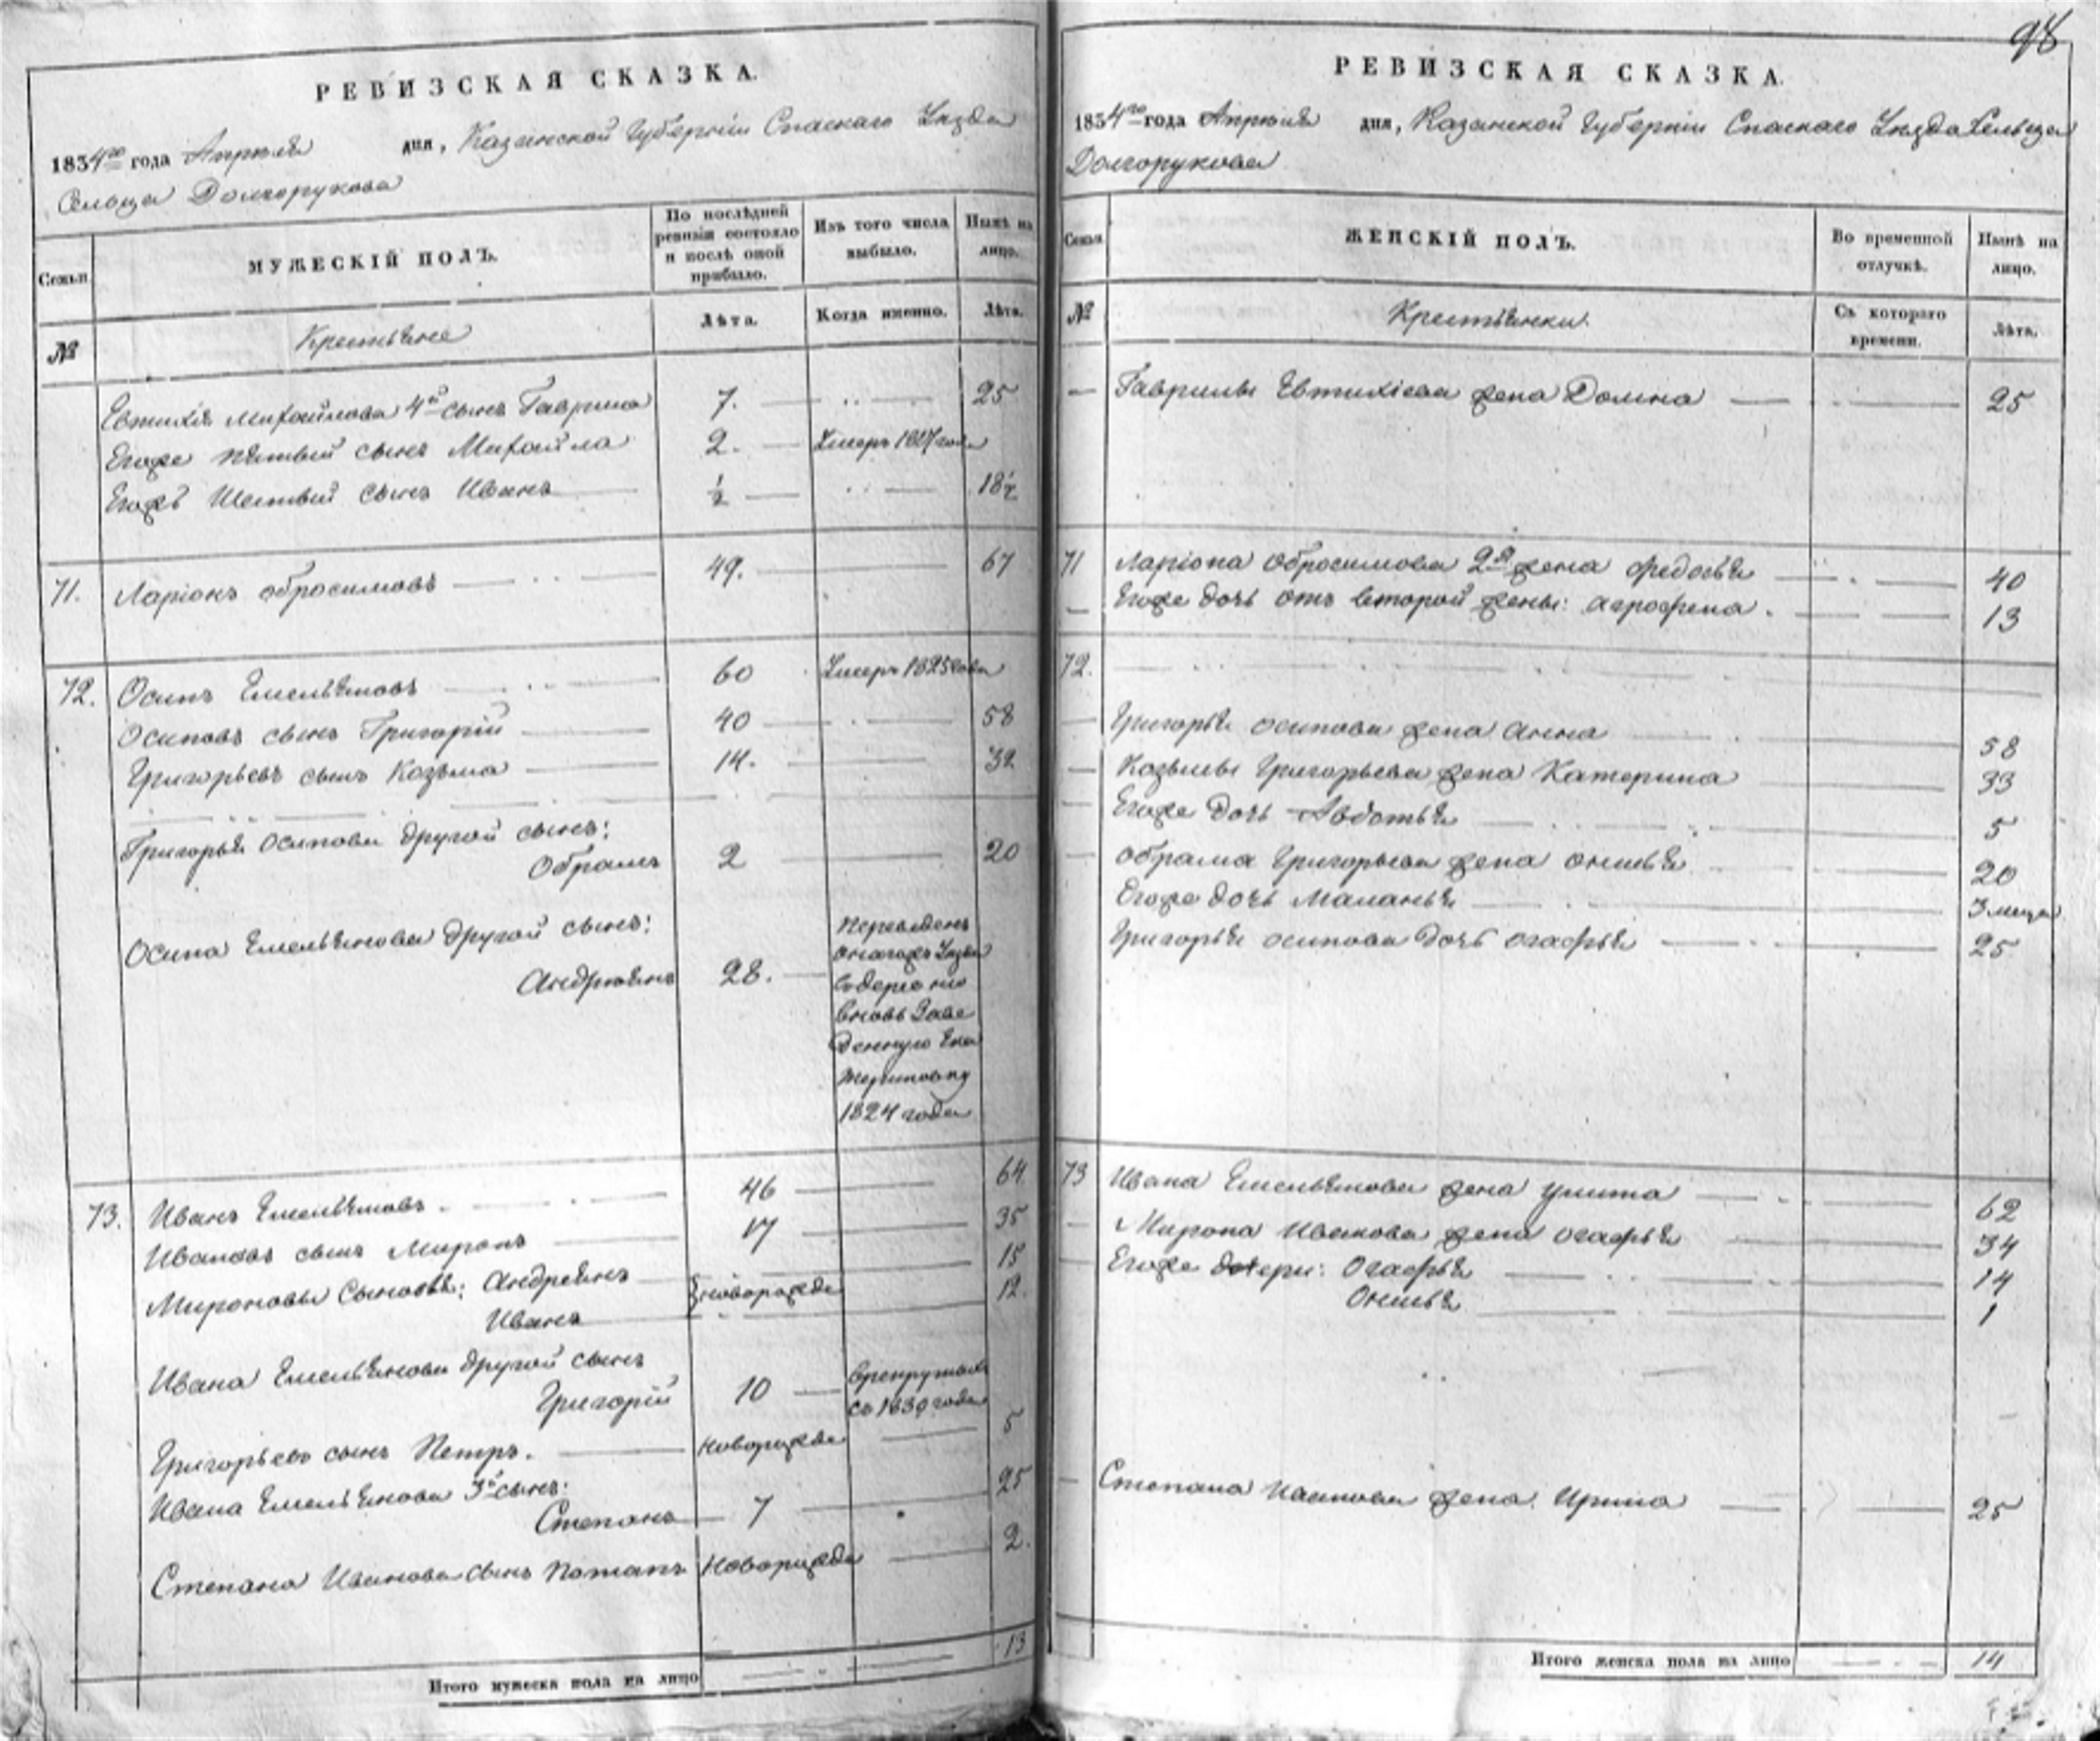 98
РЕВИЗСКАЯ СКАЗКА.
1834го года Апреля дня, Казанской Губернiи Спаскаго Уезда
Сельца Долгорукова
Семьи
МУЖЕСКIЙ ПОЛЪ.
По послѣдней ревизiи состояло и послѣ оной прибыло.
Изъ того числа выбыло.
Нынѣ на лицо.
№
Крестьяне
Лѣта.
Когда именно.
Лѣта.
Евтихiя Михайлова 4й сынъ Гаврила 7. 25
Егоже пятый сынъ Михайла 2. Умеръ 1827 года
Егожъ Шестый сынъ Иванъ 1/2 18 1/2
71. Ларiонъ обросимовъ 49. 67
72. Осипъ Емельяновъ 60 Умеръ 1825 года
Осиповъ сынъ Григорiй 40 58
Григорьевъ сынъ Козьма 14. 32
Григорья осипова другой сынъ:
Обрамъ 2 20
Осипа Емельянова другой сынъ:
Андреянъ 28.
Переведенъ
оногожъ Уезда
вдеревню
вновь Заве
денную Ека
териновку
1824 года
73. Иванъ Емельяновъ. 46 64
Ивановъ сынъ Миронъ 17 35
Мироновы Сыновья: Андреянъ новорожде 15
Иванъ 12.
Ивана Емельянова другой сынъ
Григорiй 10 врекрутахъ
съ 1830 года
Григорьевъ сынъ Петръ. новорожде 5
Ивана Емельянова 3й сынъ:
Степанъ 7 25
Степана Иванова сынъ Потапъ Новорожде 2.
Итого мужеска пола на лицо 13
РЕВИЗСКАЯ СКАЗКА.
1834го года Апреля дня, Казанской Губернiи Спаскаго Уезда Сельца
Долгорукова
Семьи
ЖЕНСКIЙ ПОЛЪ.
Во временной отлучкѣ.
Нынѣ на лицо.
№
Крестьянки.
Съ котораго времени.
Лѣта.
Гаврилы Евтихiева жена Домна 25
71 Ларiона Обросимова 2я жена Федосья 40
Егоже дочь отъ второй жены: агрофена. 13
72.
Григорья осипова жена анна 58
Козьмы Григорьева жена Катерина 33
Егоже Дочь Авдотья 5
обрама Григорьева жена онисья 20
Егоже дочь Маланья 3 месяца
Григорья осипова дочь огафья 25
73 Ивана Емельянова жена улита 62
Мирона Иванова жена огафья 34
Егоже дочери: Огафья 14
Онисья 1
Степана Иванова жена Ирина 25
Итого женска пола на лицо 14